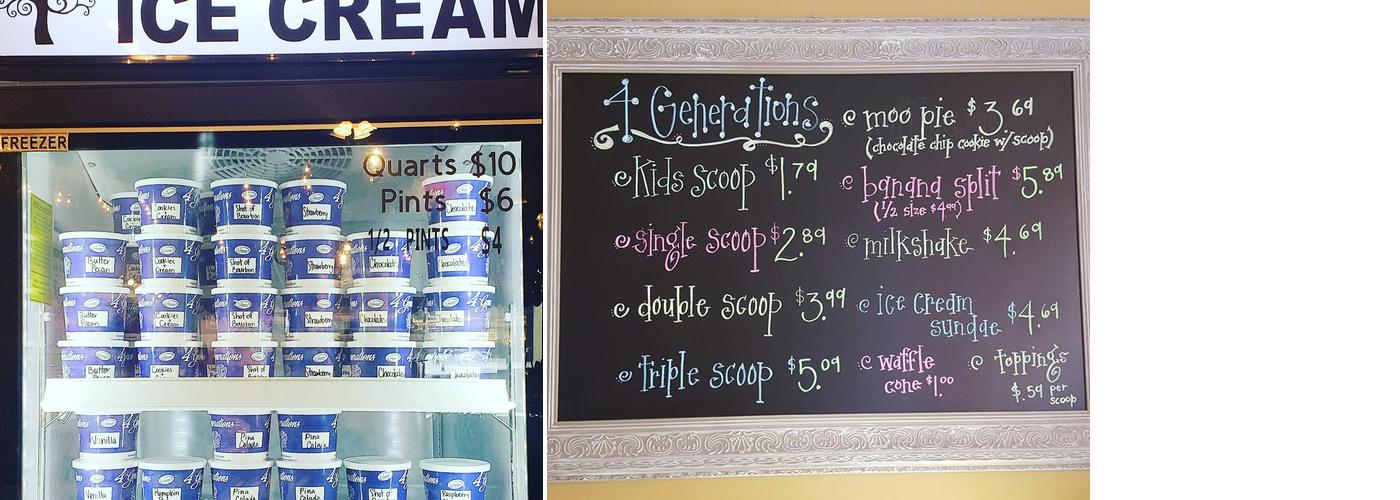 ICE CREAM
FREEZER
Quarts $10
Pints $6
1/2 PINTS $4
Cookies
Cream
Shot of
Bourbon
Strawberry
Chocolate
Butter
Pecan
Cookies
Cream
Shot of
Bourbon
Strawberry
Chocolate
Chocolate
Butter
Pecan
Cookies
Cream
Shot of
Bourbon
Strawberry
Chocolate
Chocolate
Butter
Pecan
Cookies
Cream
Shot of
Bourbon
Strawberry
Chocolate
Chocolate
Vanilla
Pina
Colada
Pina
Colada
Vanilla
Pumpkin
Pina
Colada
Pina
Colada
Shot of
Raspberry
4 Generations
Kids scoop $1.79
single scoop $2.89
double scoop $3.99
triple scoop $5.09
moo pie $3.69
(chocolate chip cookie w/scoop)
banana split $5.89
(1/2 size $4.99)
milkshake $4.69
ice cream
sundae $4.69
waffle
cone $1.00
toppings
$.59 per
scoop